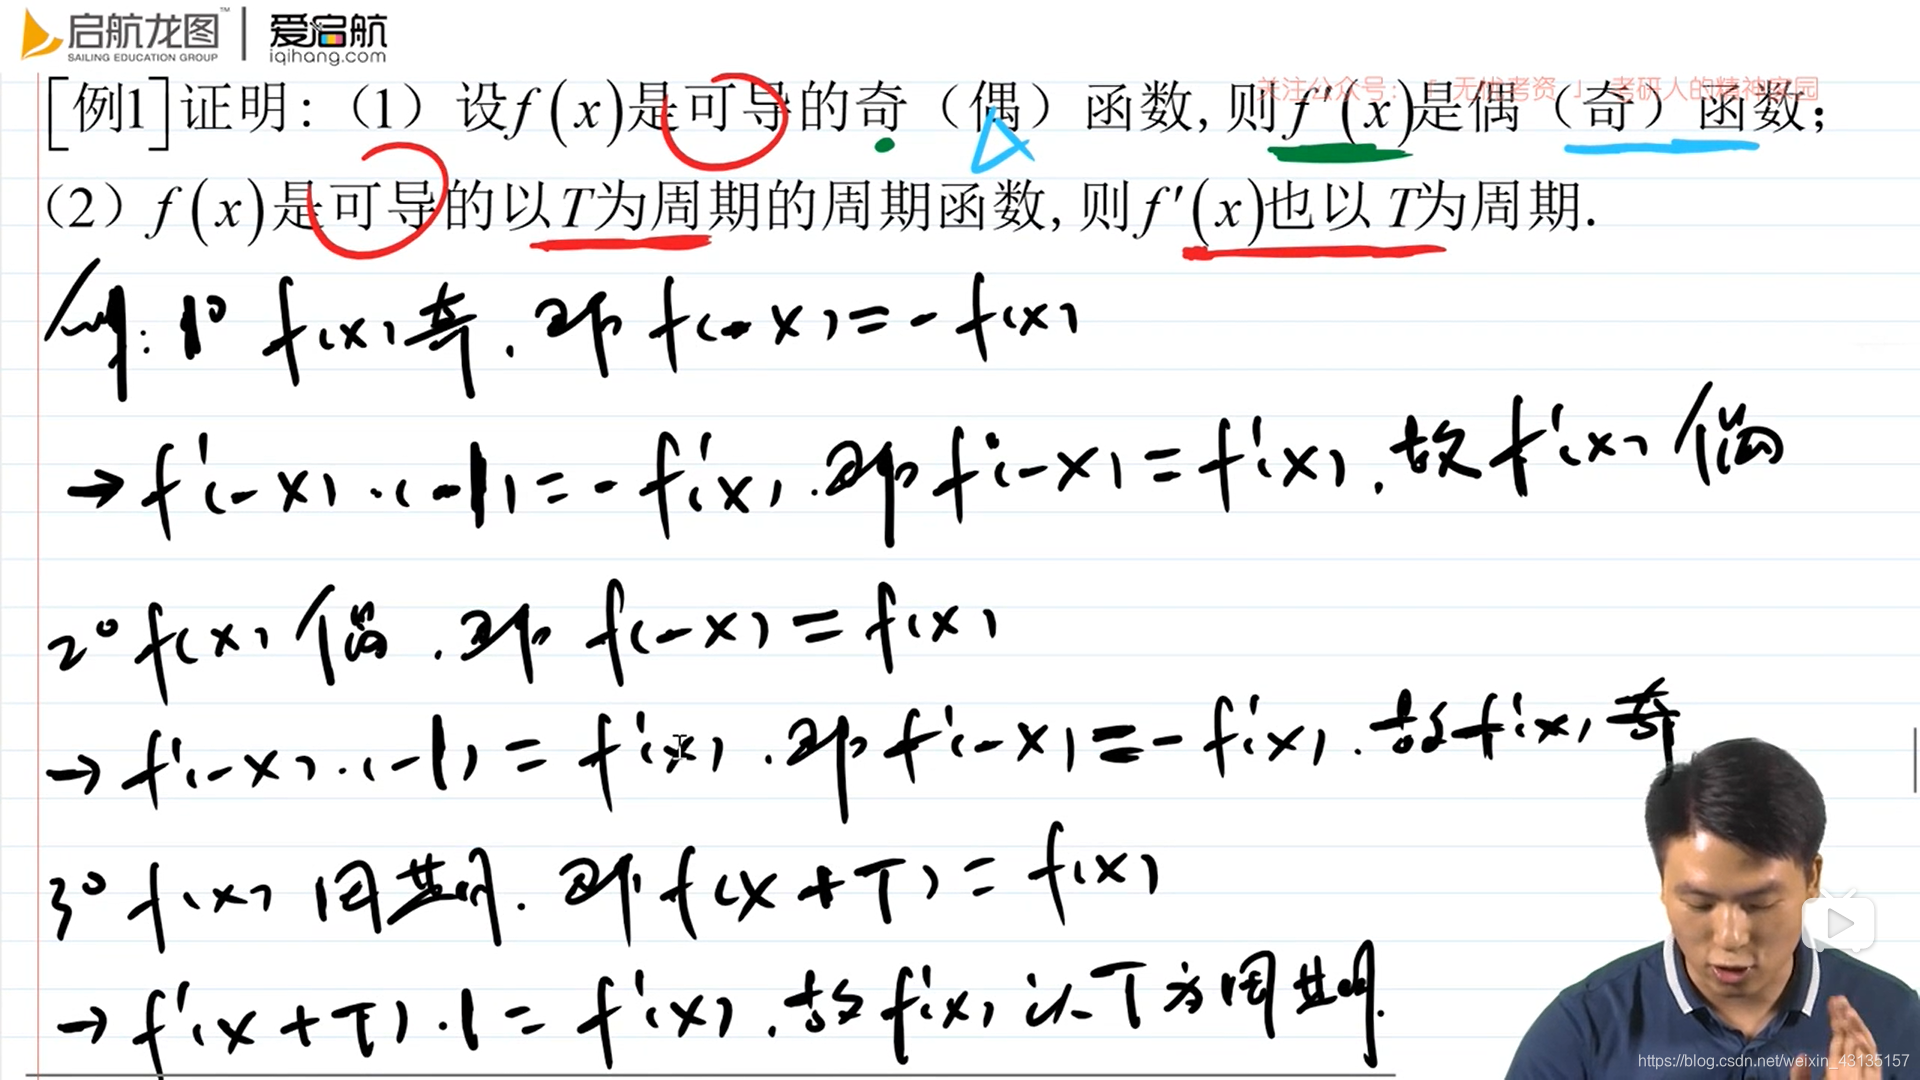 启航龙图 | 爱启航
SAILING EDUCATION GROUP iqihang.com
关注公众号：「无忧考资」考研人的精神家园
[例1]证明:（1）设f(x)是可导的奇（偶）函数,则f′(x)是偶（奇）函数;
（2）f(x)是可导的以T为周期的周期函数,则f′(x)也以T为周期.
1° f(x)奇. 即 f(-x)=-f(x)
→ f′(-x)·(-1)=-f′(x). 即 f′(-x)=f′(x). 故 f′(x) 偶
2° f(x) 偶. 即 f(-x)=f(x)
→ f′(-x)·(-1)=f′(x). 即 f′(-x)=-f′(x). 故 f′(x) 奇
3° f(x) 周期. 即 f(x+T)=f(x)
→ f′(x+T)·1=f′(x). 故 f′(x) 以 T 为周期.
https://blog.csdn.net/weixin_43135157